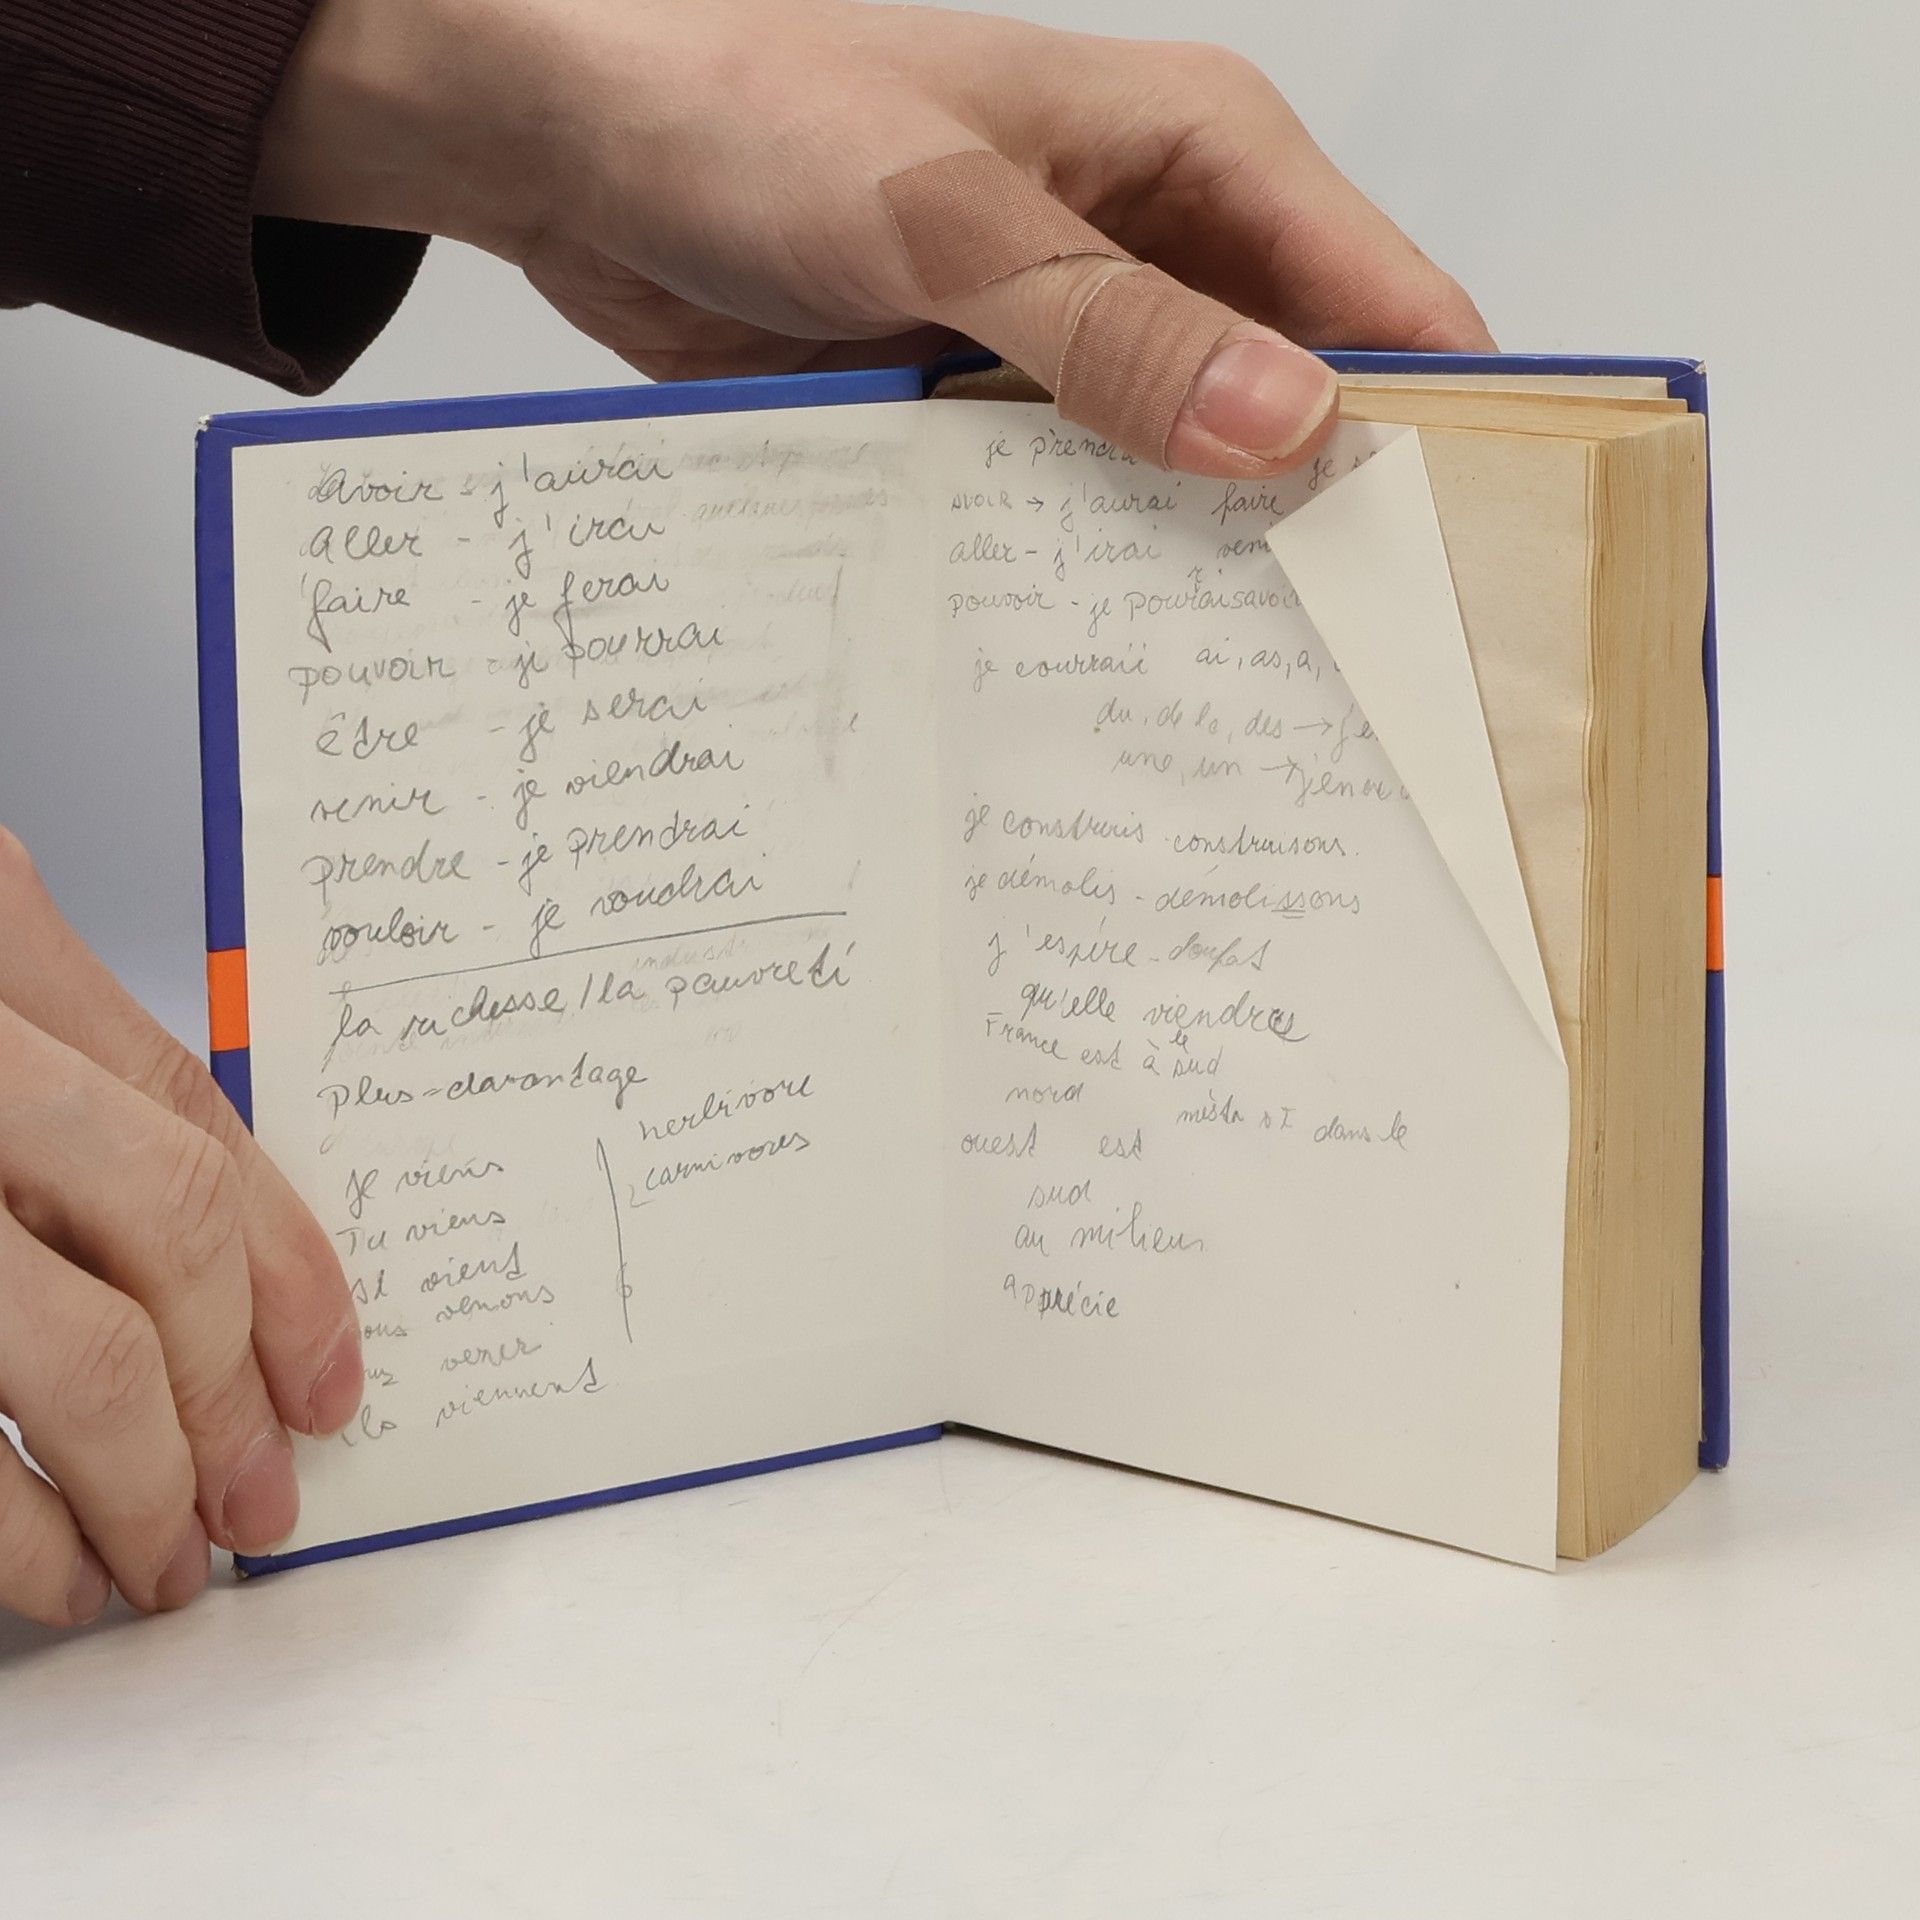 avoir - j'aurai
aller - j'irai
faire - je ferai
pouvoir - je pourrai
être - je serai
venir - je viendrai
prendre - je prendrai
vouloir - je voudrai
la richesse / la pauvreté
plus = davantage
herbivore
carnivores
je viens
Tu viens
il vient
venons
venez
ils viennent
je prendra
avoir → j'aurai faire
aller - j'irai veni
pouvoir - je pourrai savoir
je courraii ai, as, a,
du, de la, des → j'e
une, un →
je construis - construisons.
je démolis - démolissons
j'espére - doufat
qu'elle viendra
France est à le sud
nord
ouest est města dans le
sud
au milieu
apprécie